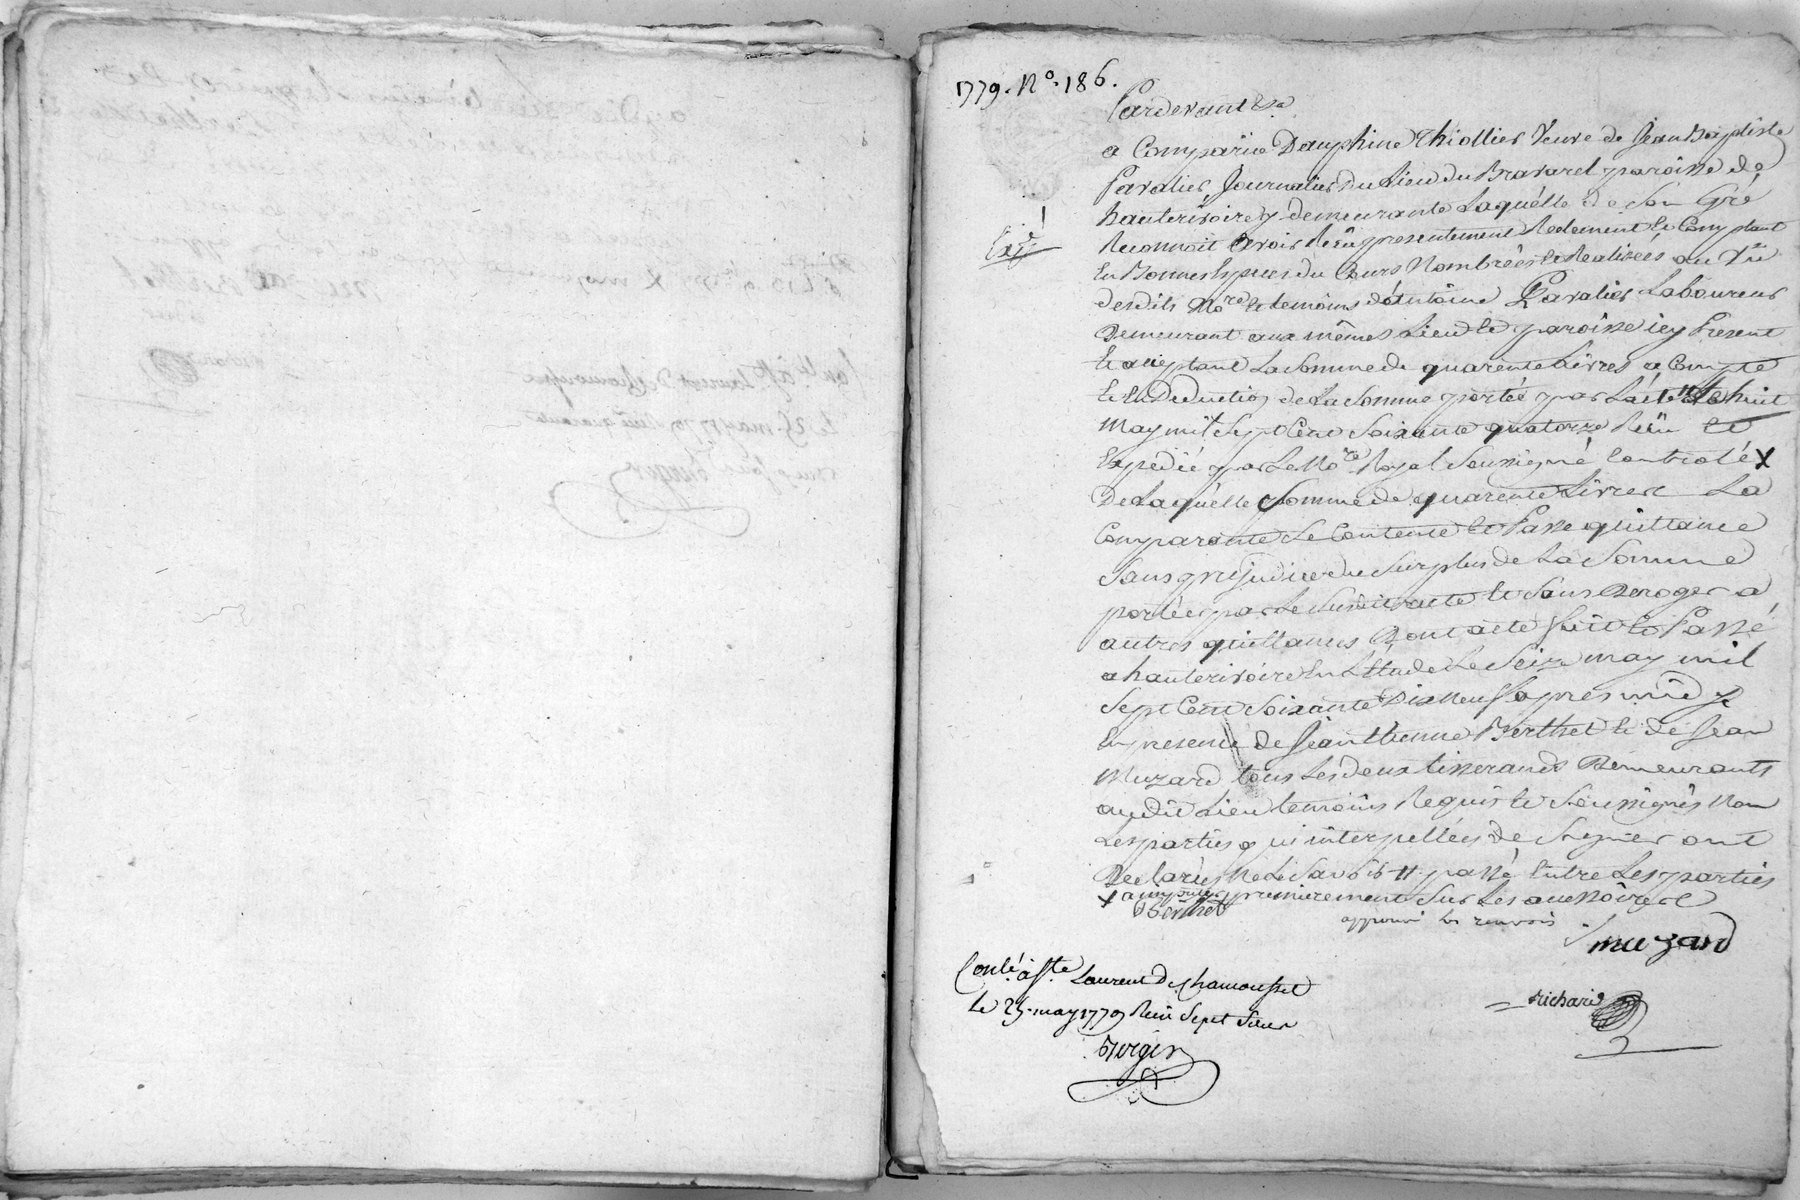 1779. N.º 186.
Pardevant &a
a Comparüe Dauphine Thiollier Veuve de Jean Baptiste
Pavalier Journalier du Lieu du Bravarel paroisse de
hauterivoire y demeurante Laquelle de Son Gré
Expé
Reconnoit avoir Reçü presentement Reelement et Comptant
En Bonnes Especes du Cours Nombrées et Realisées au Vu
desdits No.re et temoins d'Antoine Pavalier Laboureur
Demeurant aux mêmes Lieu et paroisse icy Present
et acceptant La Somme de quarente Livres a Compte
et En Deduction de La Somme portée par L'acte # Le huit
May mil Sept Cent Soixante quatorze Reçü et
Expédié par Le No.re Royal Soussigné Controlé X
De Laquelle Somme de quarente Livres La
Comparante Se Contente et Passe quittance
Sans prejudice du Surplus de La Somme
portée par Le Susdit acte et Sans Deroger a
autres quittances Dont acte fait et Passé
a hauterivoire En L'Etude Le Seize may mil
Sept Cent Soixante Dix Neuf apres midy
En presence de Jean Etienne Berthet et de Jean
Muzard tous Les deux tisserands Demeurants
audit Lieu temoins Requis et Soussignés Non
Les parties qui interpellées de Signer ont
Declarés Ne Le Savoir # passé Entre Les parties
X ainsy premierement Sur Les
Berthet
approuvé les renvois
J muzard
Conlé. à Ste. Laurent De Chamousset
Le 25. may 1779 Reçü Sept Sous
richard
Berger